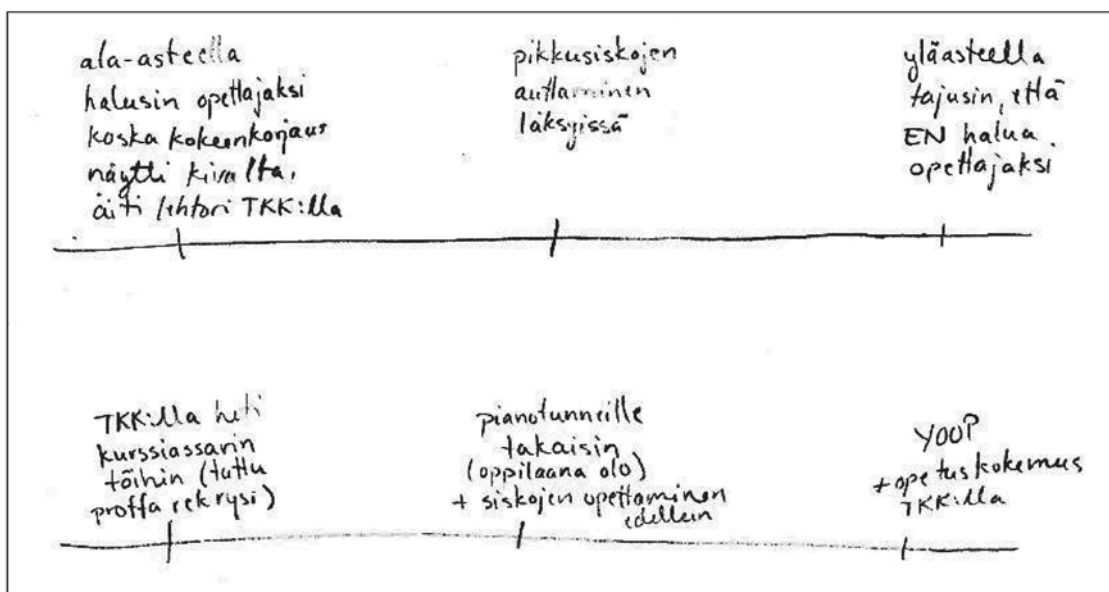 ala-asteella
halusin opettajaksi
koska kokeenkorjaus
näytti kivalta,
äiti lehtori TKK:lla
pikkusiskojen
auttaminen
läksyissä
yläasteella
tajusin, että
EN halua
opettajaksi
TKK:lla heti
kurssiassarin
töihin (tuttu
proffa rekrysi)
pianotunneille
takaisin
(oppilaana olo)
+ siskojen opettaminen
edelleen
YOOP
+opetuskokemus
TKK:lla